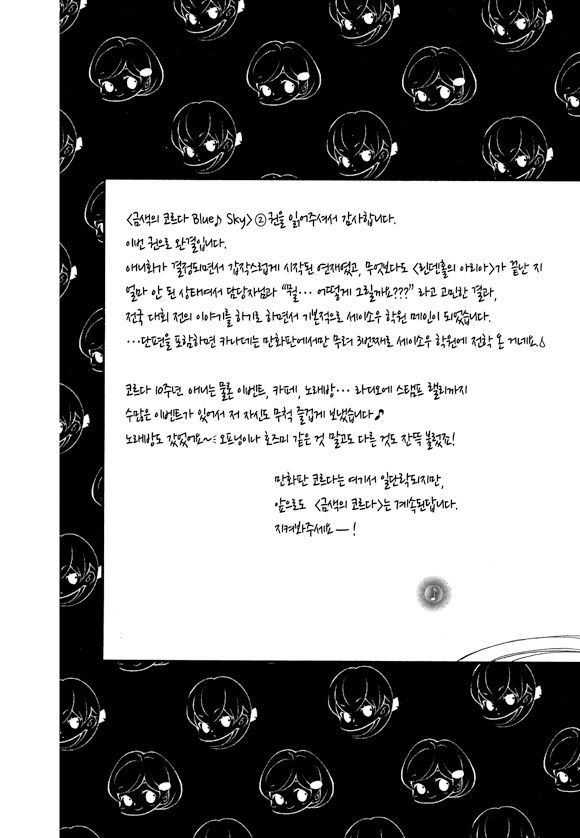 <금색의 코르다 Blue♪ Sky> ②권을 읽어주셔서 감사합니다.
이번 권으로 완결입니다.
애니화가 결정되면서 갑작스럽게 시작된 연재였고, 무엇보다도 <린덴홀의 아리아>가 끝난 지
얼마 안 된 상태여서 담당자님과 "뭘… 어떻게 그릴까요???" 라고 고민한 결과,
전국 대회 전의 이야기를 하기로 하면서 기본적으로 세이소우 학원 메인이 되었습니다.
…단편을 포함하면 카나데는 만화판에서만 무려 3번째로 세이소우 학원에 전학 온 게네요
코르다 10주년. 애니는 물론 이벤트, 카페, 노래방… 라디오에 스탬프 랠리까지
수많은 이벤트가 있어서 저 자신도 무척 즐겁게 보냈습니다♪
노래방도 갔었어요~ 오프닝이나 호즈미 같은 것 말고도 다른 것도 잔뜩 불렀죠!
만화판 코르다는 여기서 일단락되지만,
앞으로도 <금색의 코르다>는 계속된답니다.
지켜봐주세요—!